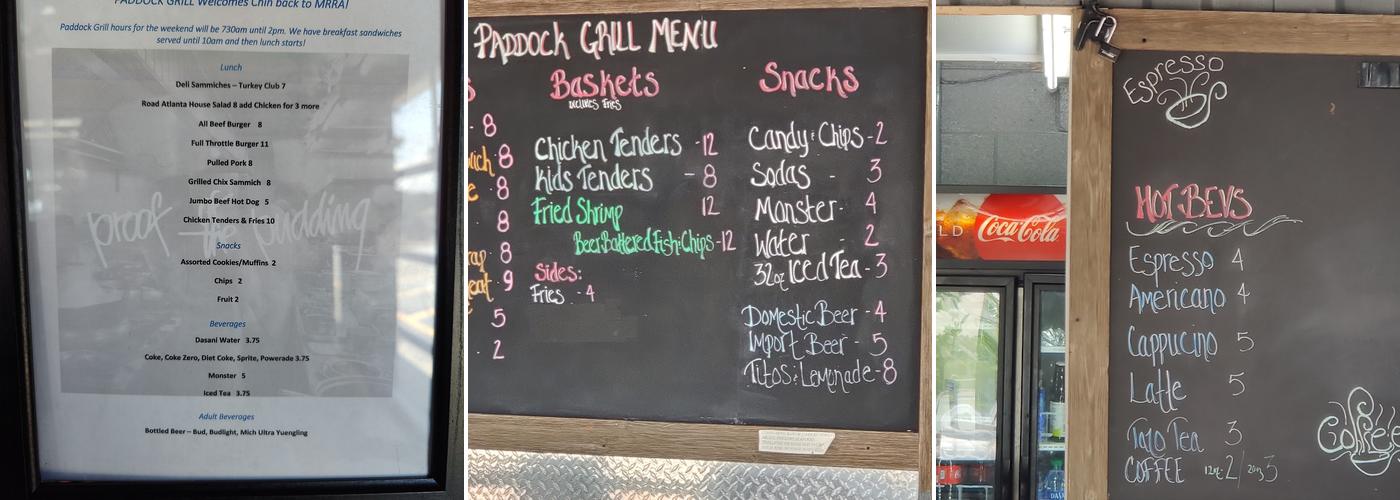 PADDOCK GRILL Welcomes Chin back to MRRA!
Paddock Grill hours for the weekend will be 730am until 2pm. We have breakfast sandwiches
served until 10am and then lunch starts!
Lunch
Deli Sammiches – Turkey Club 7
Road Atlanta House Salad 8 add Chicken for 3 more
All Beef Burger 8
Full Throttle Burger 11
Pulled Pork 8
Grilled Chix Sammich 8
Jumbo Beef Hot Dog 5
Chicken Tenders & Fries 10
proof the pudding
Snacks
Assorted Cookies/Muffins 2
Chips 2
Fruit 2
Beverages
Dasani Water 3.75
Coke, Coke Zero, Diet Coke, Sprite, Powerade 3.75
Monster 5
Iced Tea 3.75
Adult Beverages
Bottled Beer – Bud, Budlight, Mich Ultra Yuengling
PADDOCK GRILL MENU
s
- 8
wich 8
e - 8
8
rap 8
eat - 9
5
- 2
Baskets
includes Fries
Chicken Tenders - 12
Kids Tenders - 8
Fried Shrimp 12
Beer Battered Fish & Chips - 12
Sides:
Fries - 4
Snacks
Candy & Chips - 2
Sodas - 3
Monster - 4
Water - 2
32oz Iced Tea - 3
Domestic Beer - 4
Import Beer - 5
Titos & Lemonade - 8
Espresso
HOT BEVS
Espresso 4
Americano 4
Cappucino 5
Latte 5
Tazo Tea 3
COFFEE 12oz 2 / 20oz 3
Coffee
LD
Coca-Cola